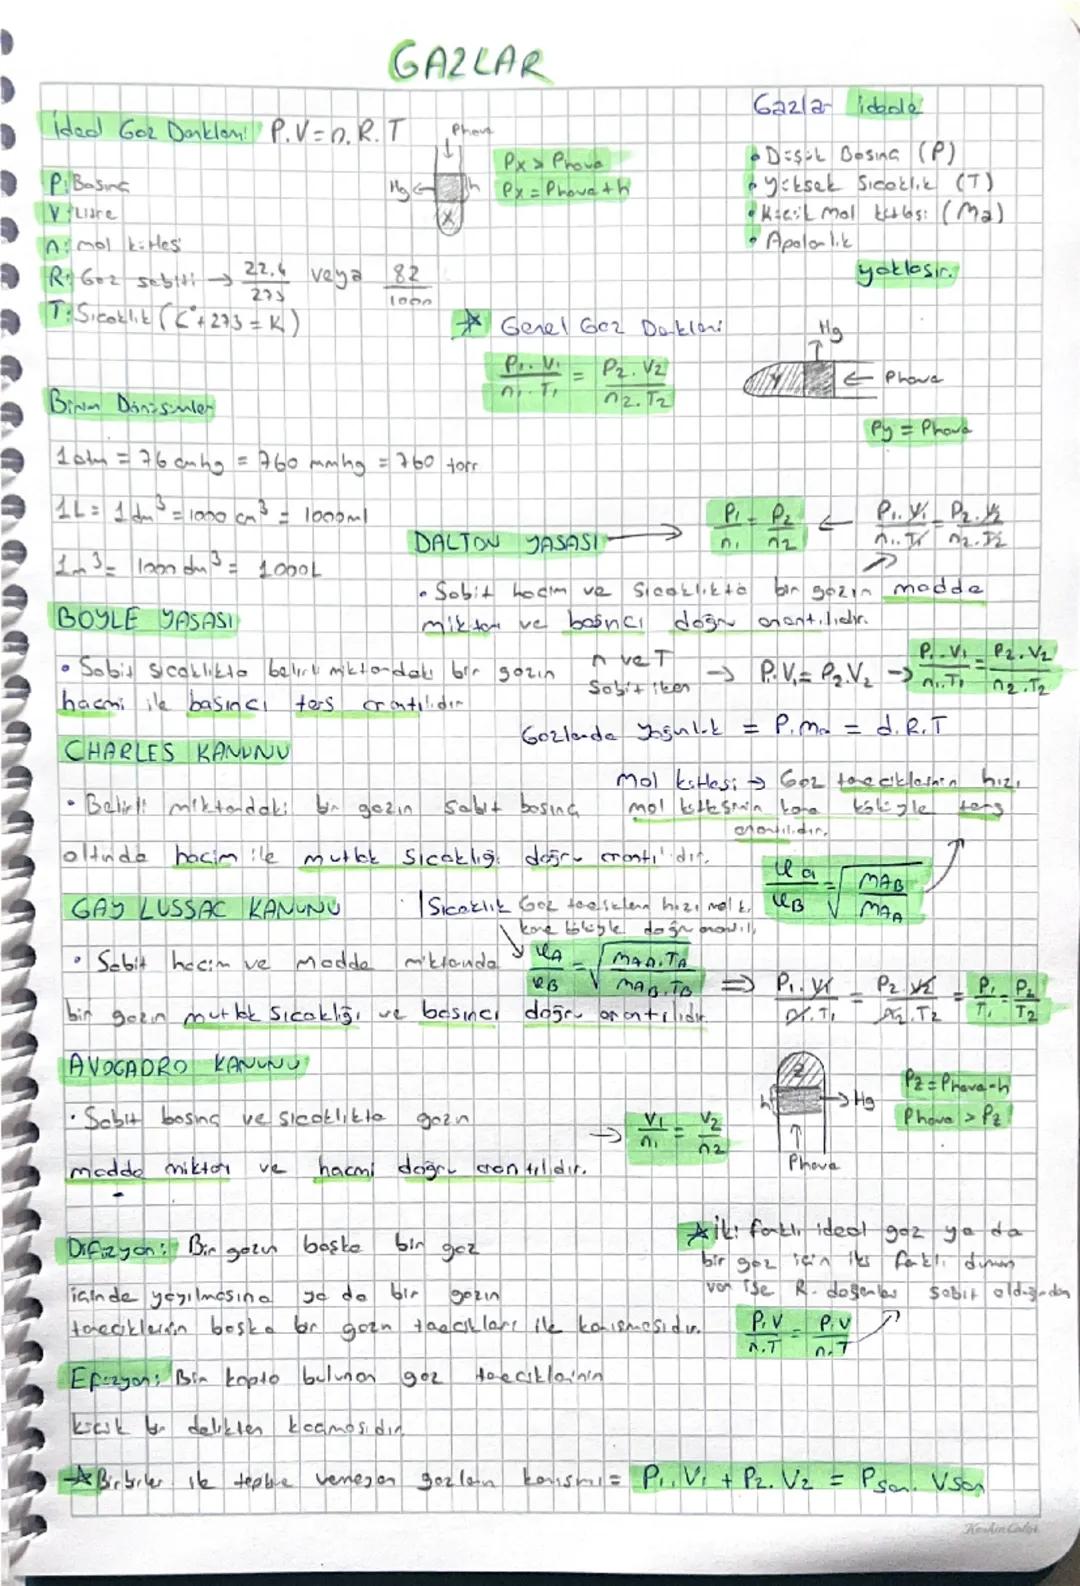 GAZLAR
İdeal Gaz Denklemi: P.V = n.R.T
P: Basınç
V: Litre
n: mol kütlesi
R: Gaz sabiti → 22,4/273 veya 82/1000
T: Sıcaklık (C° + 273 = K)
Phava
Hg
h
X
Px > Phava
Px = Phava + h
Gazlar ideale
• Düşük Basınç (P)
• Yüksek Sıcaklık (T)
• Küçük mol kütlesi (Ma)
• Apolarlık
yaklaşır.
Genel Gaz Denklemi
P1.V1/n1.T1 = P2.V2/n2.T2
Hg
Y
Phava
Py = Phava
Birim Dönüşümler
1 atm = 76 cmhg = 760 mmhg = 760 torr
1L = 1 dm³ = 1000 cm³ = 1000ml
1m³ = 1000 dm³ = 1000L
DALTON YASASI → P1/n1 = P2/n2 ← P1.V1/n1.T1 = P2.V2/n2.T2
• Sabit hacim ve sıcaklıkta bir gazın madde
miktarı ve basıncı doğru orantılıdır.
BOYLE YASASI
• Sabit sıcaklıkta belirli miktardaki bir gazın
hacmi ile basıncı ters orantılıdır
n ve T
sabit iken → P1.V1 = P2.V2 → P1.V1/n1.T1 = P2.V2/n2.T2
Gazlarda Yoğunluk = P.Ma = d.R.T
CHARLES KANUNU
• Belirli miktardaki bir gazın sabit basınç
altında hacim ile mutlak sıcaklığı doğru orantılıdır.
mol kütlesi → Gaz taneciklerinin hızı
mol kütlesinin kare köküyle ters
orantılıdır.
υA/υB = √MAB/MAA
GAY LUSSAC KANUNU
• Sabit hacim ve madde miktarında
bir gazın mutlak sıcaklığı ve basıncı doğru orantılıdır.
Sıcaklık Gaz hızı
kare köküyle doğru
υA/υB = √MAA.TA/MAB.TB
⇒ P1.V1/n1.T1 = P2.V2/n2.T2 = P1/T1 = P2/T2
AVOGADRO KANUNU
• Sabit basınç ve sıcaklıkta gazın
madde miktarı ve hacmi doğru orantılıdır.
→ V1/n1 = V2/n2
Z
h
Hg
Phava
Pz = Phava - h
Phava > Pz
Difüzyon: Bir gazın başka bir gaz
içinde yayılmasına ya da bir gazın
taneciklerinin başka bir gazın tanecikleri ile karışmasıdır.
İki farklı ideal gaz ya da
bir gaz için iki farklı durum
var ise R. değerler sabit olduğundan
P.V/n.T = P.V/n.T
Efüzyon: Bir kapta bulunan gaz taneciklerinin
küçük bir delikten kaçmasıdır.
Birbirleri ile tepkime vermeyen gazların karışımı = P1.V1 + P2.V2 = Pson.Vson